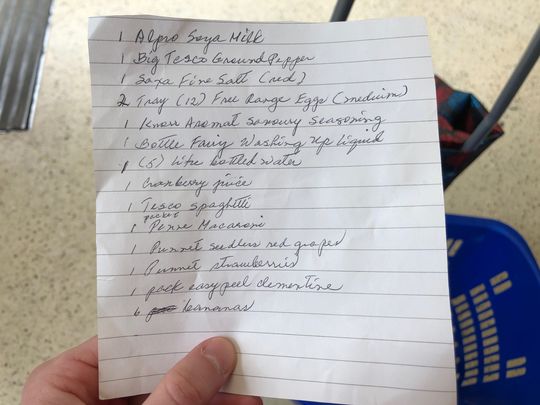 1 Alpro Soya Milk
1 Big Tesco Ground Pepper
1 Saxa Fine Salt (red)
2 Tray (12) Free Range Eggs (medium)
1 Knorr Aromat Savoury Seasoning
1 Bottle Fairy Washing Up Liquid
1 (5) Litre bottled water
1 Cranberry juice
1 Tesco spaghetti
1 packet Penne Macaroni
1 Punnet seedless red grapes
1 Punnet strawberries
1 pack easy peel clementine
6 bananas